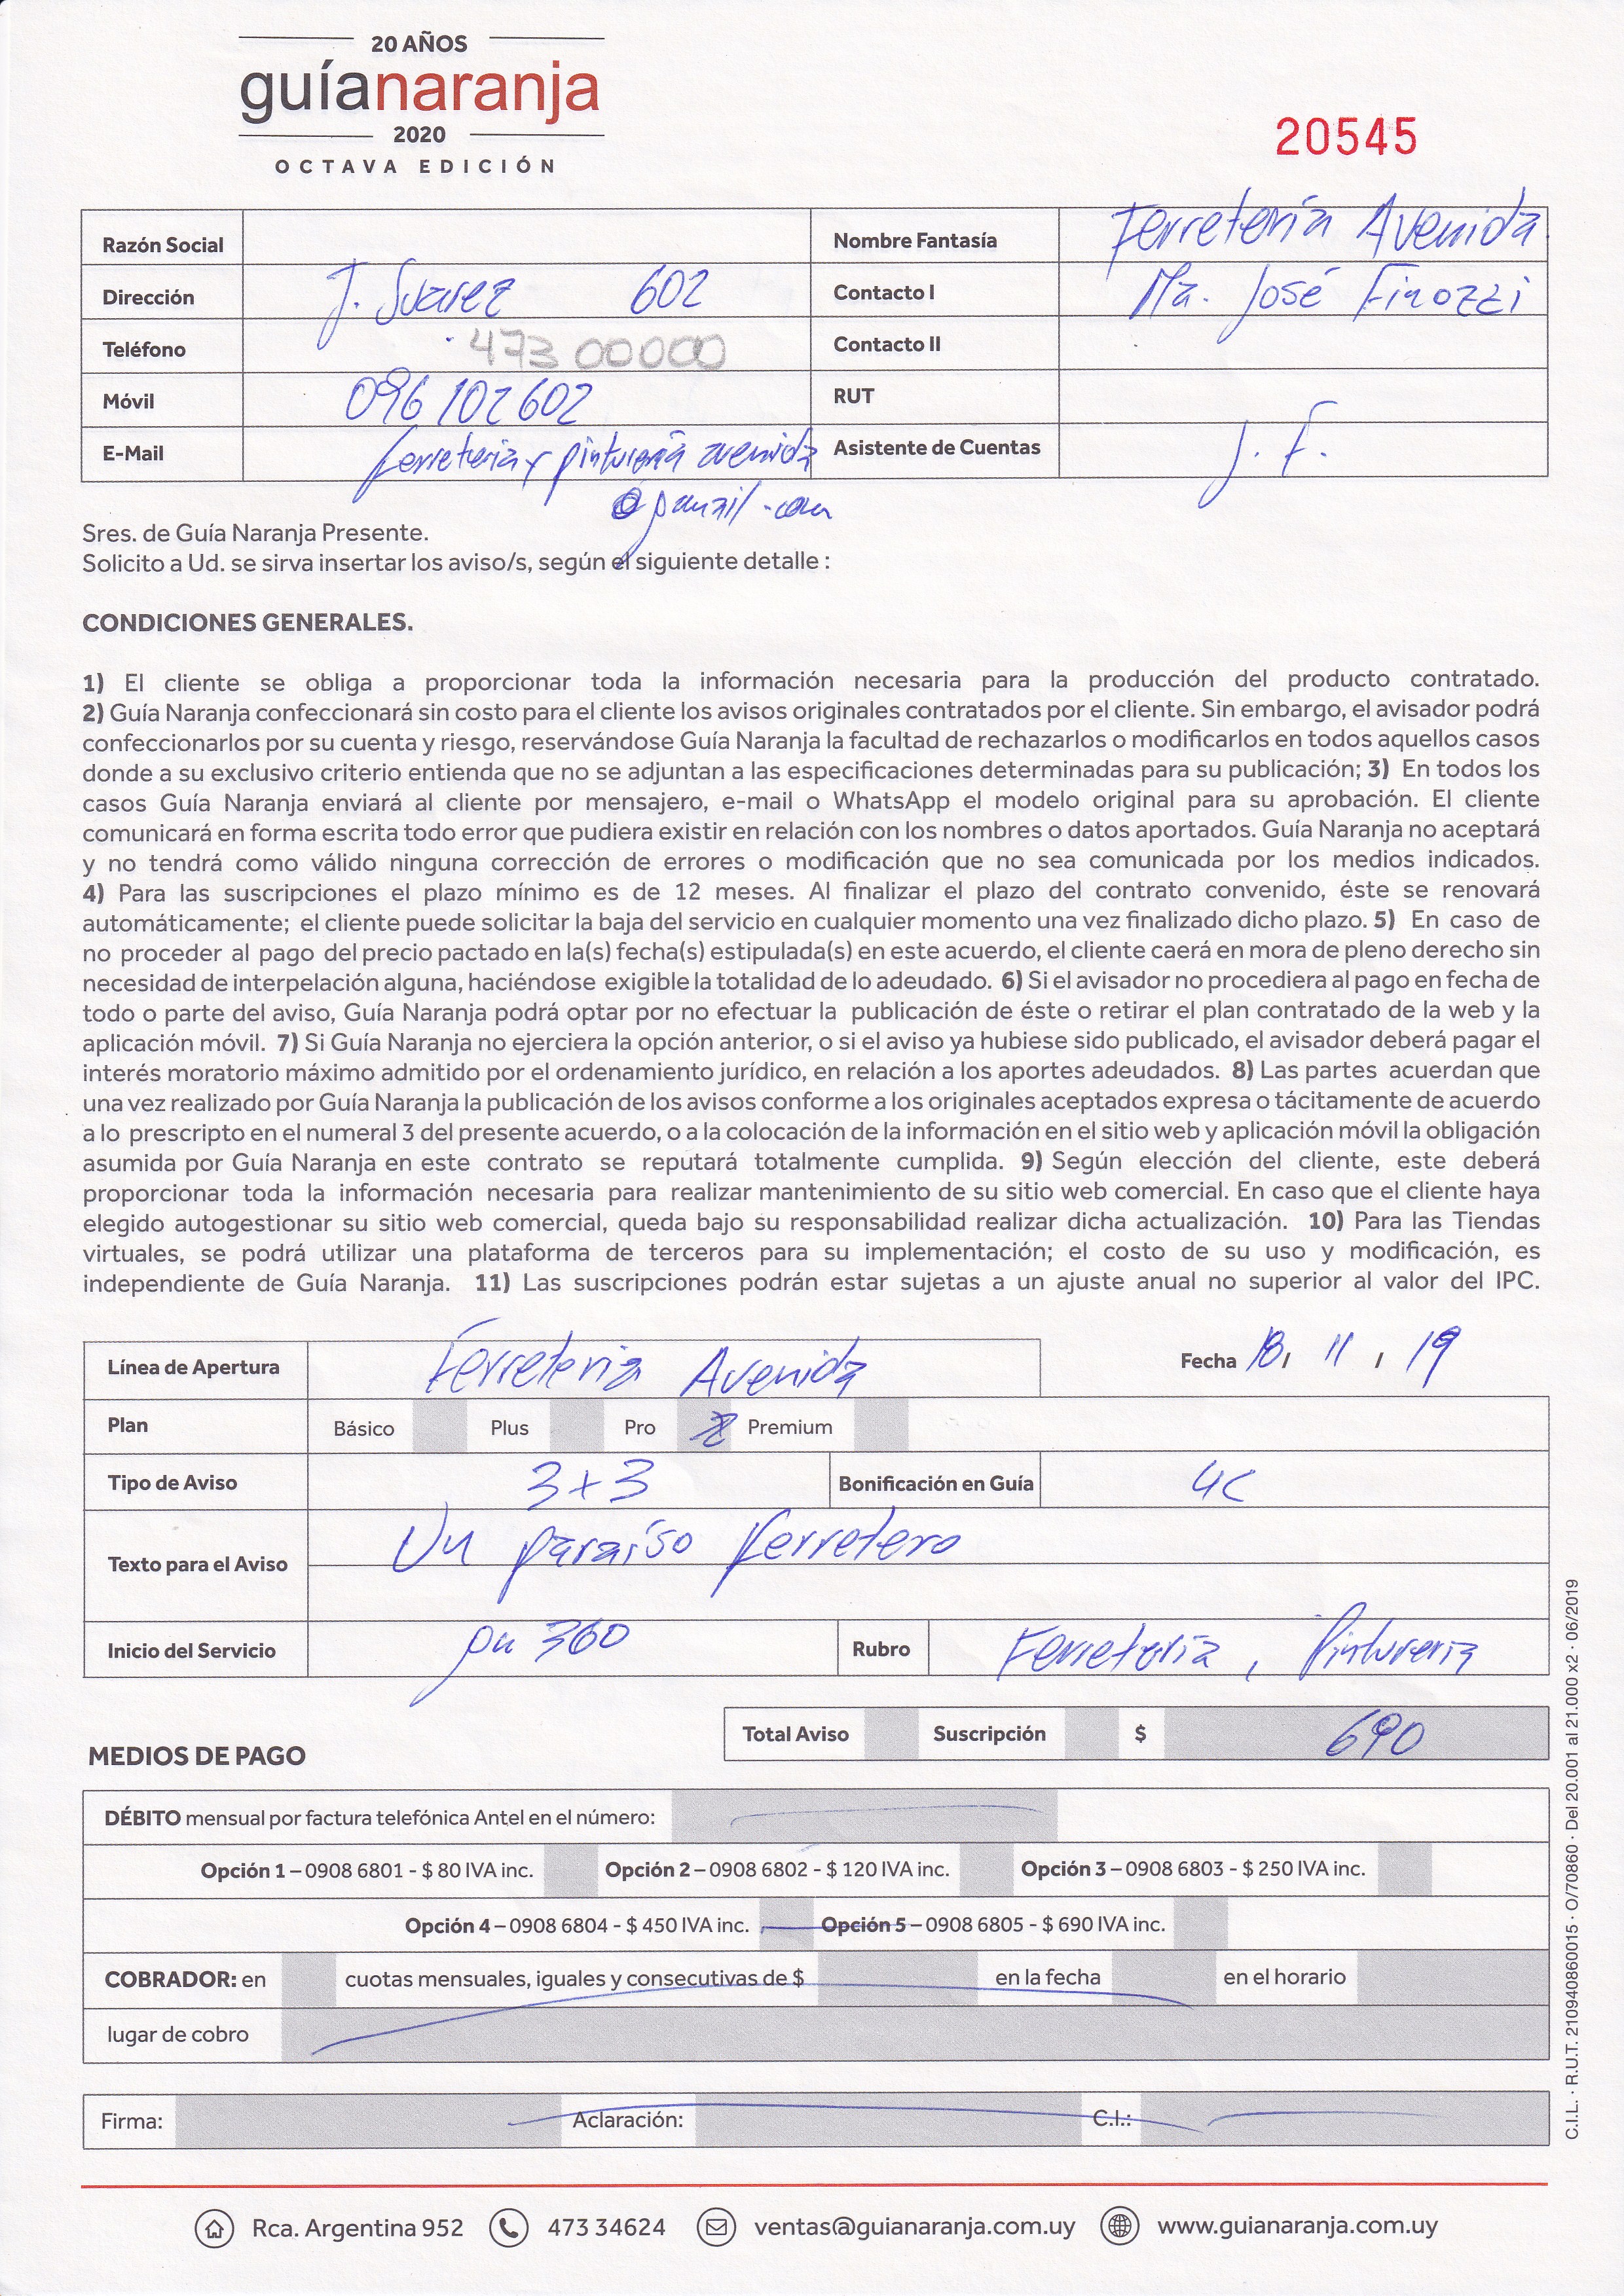 20 AÑOS
guíanaranja
2020
OCTAVA EDICIÓN
20545
Razón Social
Nombre Fantasía Ferretería Avenida
Dirección J. Suarez 602
Contacto I Ma. José Finozzi
Teléfono 473 00000
Contacto II
Móvil 096 102 602
RUT
E-Mail ferreteria y pintureria avenida
@gmail.com
Asistente de Cuentas J. F.
Sres. de Guía Naranja Presente.
Solicito a Ud. se sirva insertar los aviso/s, según el siguiente detalle :
CONDICIONES GENERALES.
1) El cliente se obliga a proporcionar toda la información necesaria para la producción del producto contratado.
2) Guía Naranja confeccionará sin costo para el cliente los avisos originales contratados por el cliente. Sin embargo, el avisador podrá
confeccionarlos por su cuenta y riesgo, reservándose Guía Naranja la facultad de rechazarlos o modificarlos en todos aquellos casos
donde a su exclusivo criterio entienda que no se adjuntan a las especificaciones determinadas para su publicación; 3) En todos los
casos Guía Naranja enviará al cliente por mensajero, e-mail o WhatsApp el modelo original para su aprobación. El cliente
comunicará en forma escrita todo error que pudiera existir en relación con los nombres o datos aportados. Guía Naranja no aceptará
y no tendrá como válido ninguna corrección de errores o modificación que no sea comunicada por los medios indicados.
4) Para las suscripciones el plazo mínimo es de 12 meses. Al finalizar el plazo del contrato convenido, éste se renovará
automáticamente; el cliente puede solicitar la baja del servicio en cualquier momento una vez finalizado dicho plazo. 5) En caso de
no proceder al pago del precio pactado en la(s) fecha(s) estipulada(s) en este acuerdo, el cliente caerá en mora de pleno derecho sin
necesidad de interpelación alguna, haciéndose exigible la totalidad de lo adeudado. 6) Si el avisador no procediera al pago en fecha de
todo o parte del aviso, Guía Naranja podrá optar por no efectuar la publicación de éste o retirar el plan contratado de la web y la
aplicación móvil. 7) Si Guía Naranja no ejerciera la opción anterior, o si el aviso ya hubiese sido publicado, el avisador deberá pagar el
interés moratorio máximo admitido por el ordenamiento jurídico, en relación a los aportes adeudados. 8) Las partes acuerdan que
una vez realizado por Guía Naranja la publicación de los avisos conforme a los originales aceptados expresa o tácitamente de acuerdo
a lo prescripto en el numeral 3 del presente acuerdo, o a la colocación de la información en el sitio web y aplicación móvil la obligación
asumida por Guía Naranja en este contrato se reputará totalmente cumplida. 9) Según elección del cliente, este deberá
proporcionar toda la información necesaria para realizar mantenimiento de su sitio web comercial. En caso que el cliente haya
elegido autogestionar su sitio web comercial, queda bajo su responsabilidad realizar dicha actualización. 10) Para las Tiendas
virtuales, se podrá utilizar una plataforma de terceros para su implementación; el costo de su uso y modificación, es
independiente de Guía Naranja. 11) Las suscripciones podrán estar sujetas a un ajuste anual no superior al valor del IPC.
Línea de Apertura Ferreteria Avenida
Fecha 18 / 11 / 19
Plan Básico Plus Pro Premium
Tipo de Aviso 3+3 Bonificación en Guía 4C
Texto para el Aviso Un paraíso ferretero
Inicio del Servicio gn 360 Rubro Ferretería, Pintureria
Total Aviso Suscripción $ 690
MEDIOS DE PAGO
DÉBITO mensual por factura telefónica Antel en el número:
Opción 1 – 0908 6801 - $ 80 IVA inc. Opción 2 – 0908 6802 - $ 120 IVA inc. Opción 3 – 0908 6803 - $ 250 IVA inc.
Opción 4 – 0908 6804 - $ 450 IVA inc. Opción 5 – 0908 6805 - $ 690 IVA inc.
COBRADOR: en cuotas mensuales, iguales y consecutivas de $ en la fecha en el horario
lugar de cobro
Firma: Aclaración: C.I.:
C.I.L. · R.U.T. 210940860015 · O/70860 · Del 20.001 al 21.000 x2 · 06/2019
Rca. Argentina 952 473 34624 ventas@guianaranja.com.uy www.guianaranja.com.uy